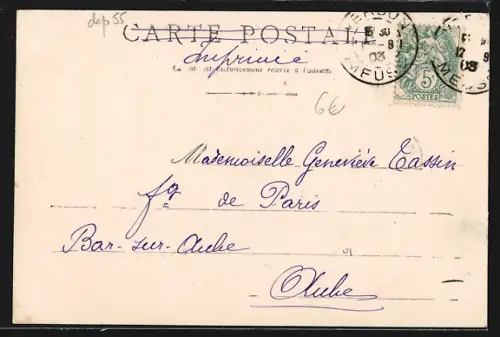 dep 55
CARTE POSTALE
Imprimé
Ce côté est exclusivement réservé à l'adresse
VERDUN
MEUSE
03
MEUSE
03
5c
POSTES
6€
Mademoiselle Geneviève Cassin
fg de Paris
Bar-sur-Aube
Aube